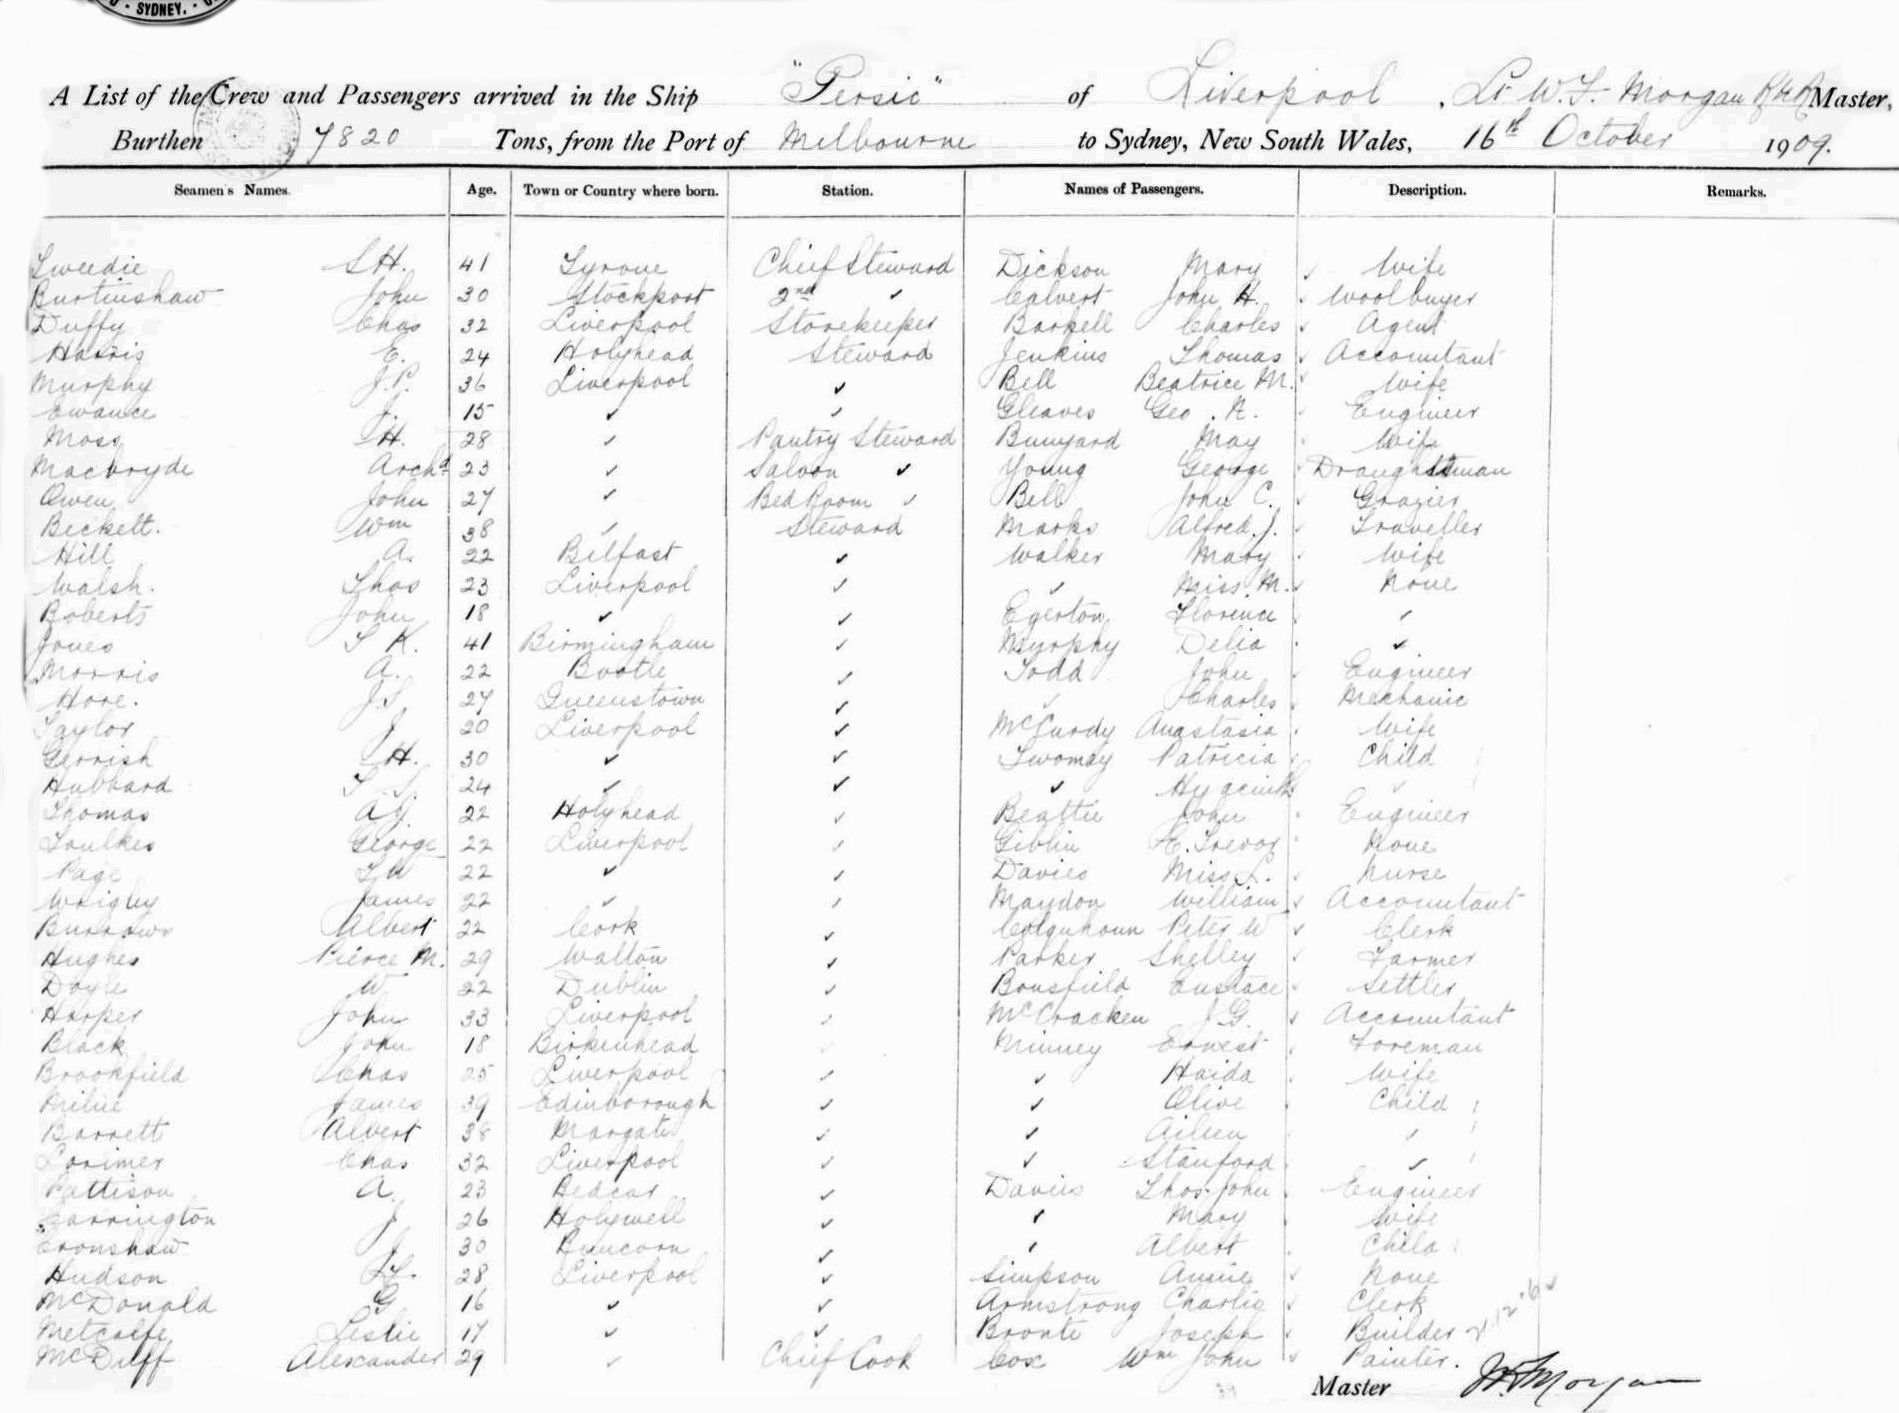 SYDNEY.
A List of the Crew and Passengers arrived in the Ship "Persic" of Liverpool, Lt. W. F. Morgan R.N.R. Master,
Burthen 7820 Tons, from the Port of Melbourne to Sydney, New South Wales, 16th October 1909.
Seamen's Names. Age. Town or Country where born. Station. Names of Passengers. Description. Remarks.
Tweedie S H. 41 Tyrone Chief Steward Dickson Mary ✓ Wife
Burtinshaw John 30 Stockport 2nd ✓ Calvert John H. ✓ Woolbuyer
Duffy Chas 32 Liverpool Storekeeper Barkell Charles ✓ Agent
Harris E. 24 Holyhead Steward Jenkins Thomas ✓ Accountant
Murphy J.P. 36 Liverpool ✓ Bell Beatrice M. ✓ Wife
Ewance J. 15 ✓ ✓ Gleaves Geo. A. ✓ Engineer
Moss H. 28 ✓ Pantry Steward Bunyard May Wife
Macbryde Archd 23 ✓ Saloon ✓ Young George ✓ Draughtsman
Owen John 27 ✓ Bed Room ✓ Bell John C. ✓ Grazier
Beckett. Wm 38 ✓ Steward Marks Alfred. J. ✓ Traveller
Hill A. 22 Belfast ✓ Walker Mary Wife
Walsh. Thos 23 Liverpool ✓ ✓ Miss. M. ✓ None
Roberts John 18 ✓ ✓ Egerton Florence ✓ ✓
Jones K. 41 Birmingham ✓ Murphy Delia ✓
Morris A. 22 Bootle ✓ Todd John ✓ Engineer
Hore. J.S. 27 Queenstown ✓ ✓ Charles Mechanic
Taylor J 20 Liverpool ✓ McCurdy Anastasia Wife
Gerrish H. 30 ✓ ✓ Twomay Patricia Child
Hubbard 24 ✓ ✓ ✓ Hyacinth ✓
Thomas A.J. 22 Holyhead ✓ Beattie John Engineer
Foulkes George 22 Liverpool ✓ Giblin E. Trevor None
Page 22 ✓ ✓ Davies Miss L. ✓ Nurse
Wrigley James 22 ✓ ✓ Maydon William ✓ Accountant
Burrows Albert 22 Cork ✓ Colquhoun Peter W ✓ Clerk
Hughes Pierce M. 29 Walton ✓ Parker Shelley ✓ Farmer
Doyle W 22 Dublin ✓ Bousfield Eustace ✓ Settler
Harper John 33 Liverpool ✓ McCracken J G. ✓ Accountant
Black John 18 Birkenhead Minney Ernest ✓ Foreman
Brookfield Chas 25 Liverpool ✓ ✓ Haida Wife
Milne James 39 Edinborough ✓ ✓ Olive Child
Barrett Albert 38 Margate ✓ ✓ Aileen ✓
Lorimer Chas 32 Liverpool ✓ ✓ Stanford ✓
Pattison A. 23 Redcar ✓ Davies Thos. John Engineer
Carrington J 26 Holywell ✓ ✓ Mary Wife
Cronshaw J 30 Runcorn ✓ ✓ Albert Child
Hudson 28 Liverpool ✓ Simpson Annie ✓ None
McDonald G 16 ✓ ✓ Armstrong Charlie ✓ Clerk
Metcalfe Leslie 17 ✓ ✓ Bronte Joseph ✓ Builder
McDuff Alexander 29 ✓ Chief Cook Cox Wm John ✓ Painter.
39 Master W.F. Morgan